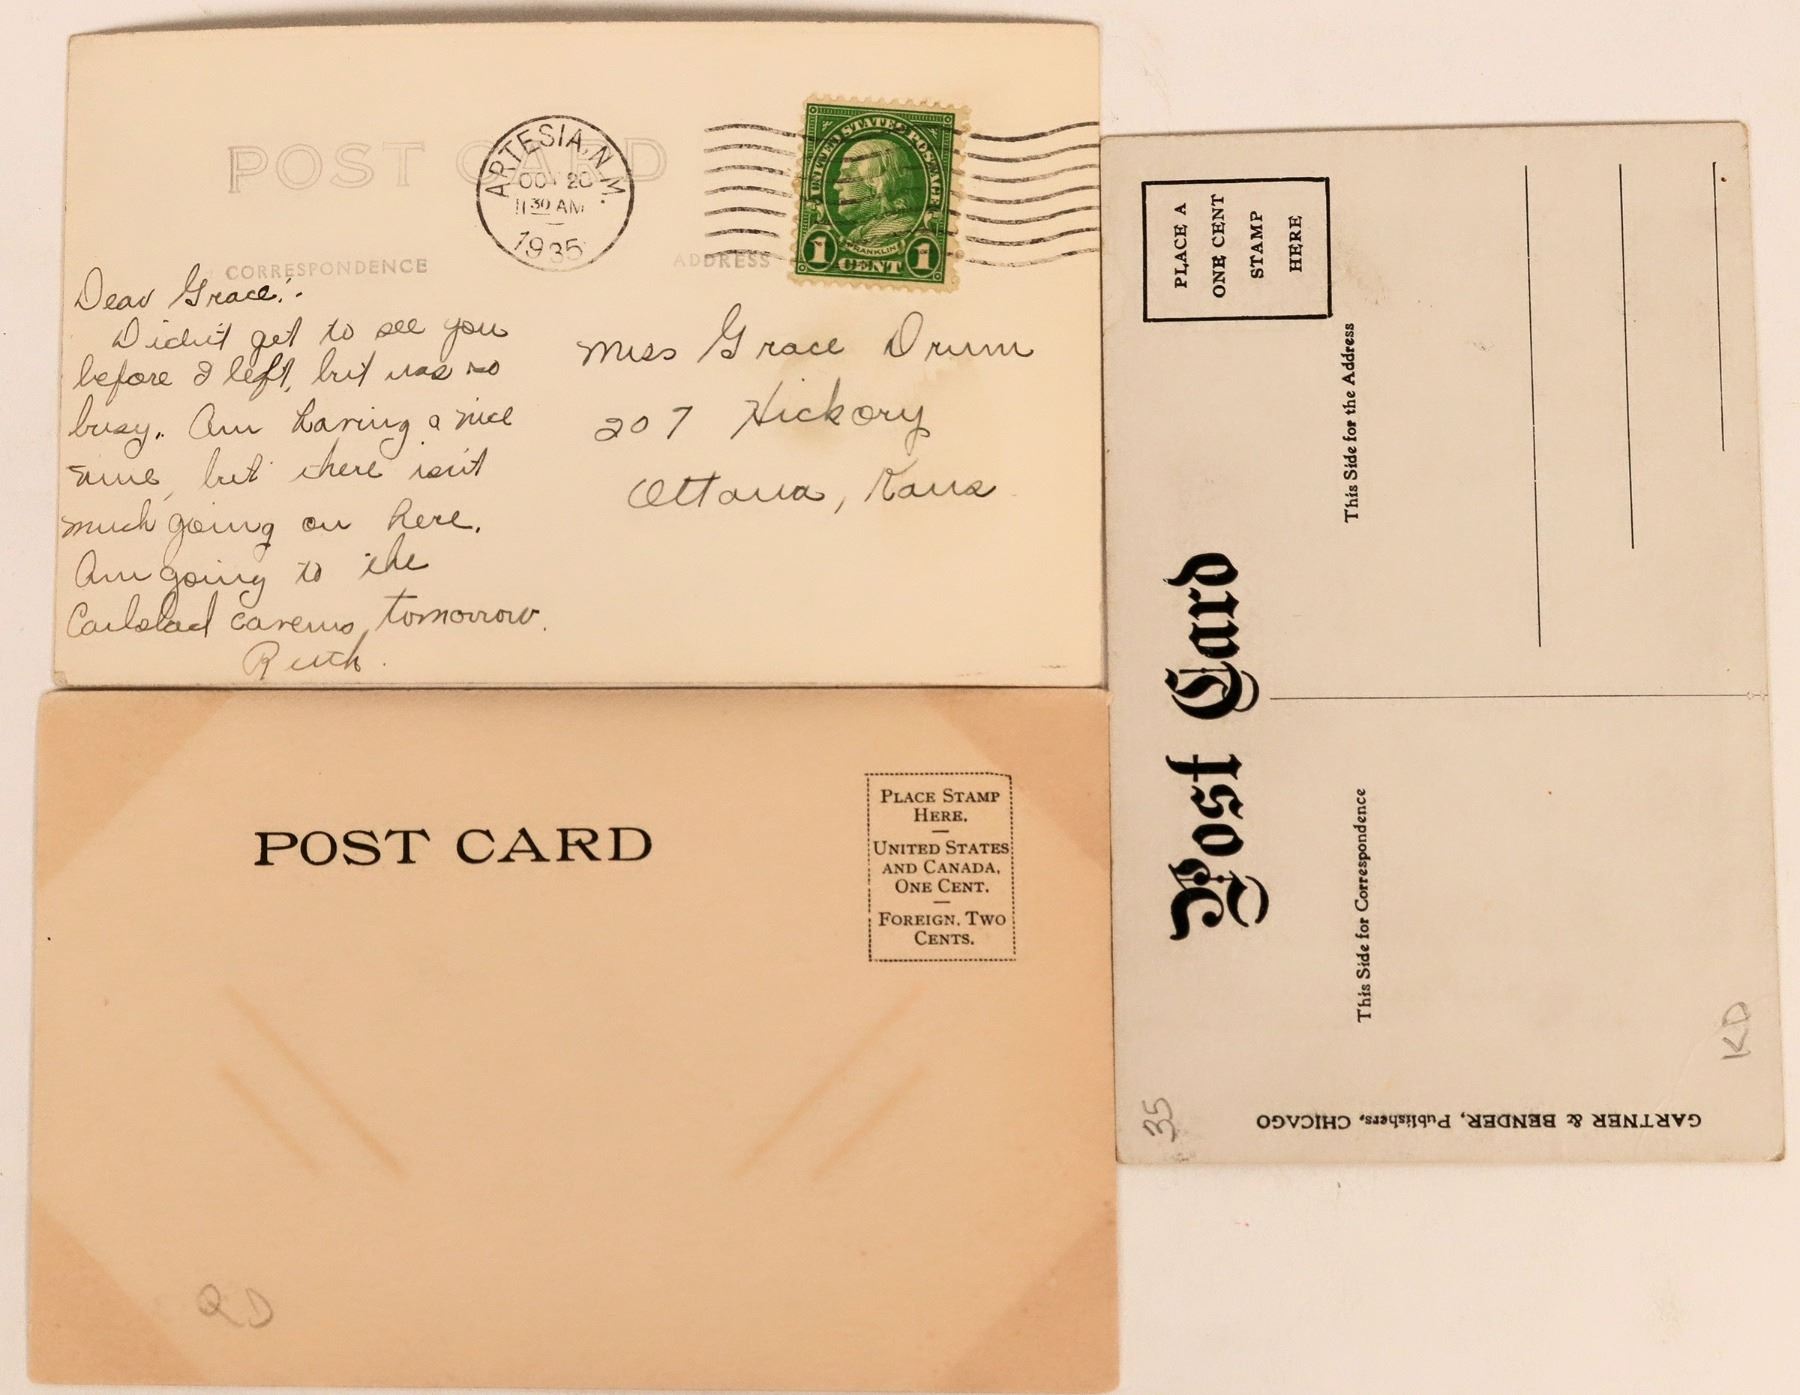 POST CARD
ARTESIA, N.M.
OCT 20
11 30 AM
1935
UNITED STATES POSTAGE
FRANKLIN
1 CENT 1
CORRESPONDENCE
ADDRESS
Dear Grace:-
Didn't get to see you
before I left, but was so
busy. Am having a nice
time, but there isn't
much going on here.
Am going to the
Carlsbad caverns tomorrow.
Ruth.
Miss Grace Drum
207 Hickory
Ottawa, Kans
POST CARD
PLACE STAMP
HERE.
UNITED STATES
AND CANADA,
ONE CENT.
FOREIGN, TWO
CENTS.
QD
PLACE A
ONE CENT
STAMP
HERE
Post Card
This Side for Correspondence
This Side for the Address
GARTNER & BENDER, Publishers, CHICAGO
35
KD